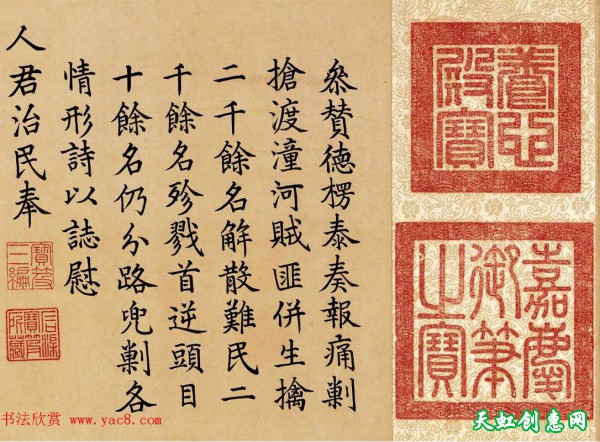 養心
殿寶
嘉慶
御筆
之寶
叅贊德楞泰奏報痛剿
搶渡潼河賊匪併生擒
二千餘名解散難民二
千餘名殄戮首逆頭目
十餘名仍分路兜剿各
情形詩以誌慰
人君治民奉
寶笈
三編
石渠
寶笈
所藏
书法欣赏 www.yac8.com
天虹创意网